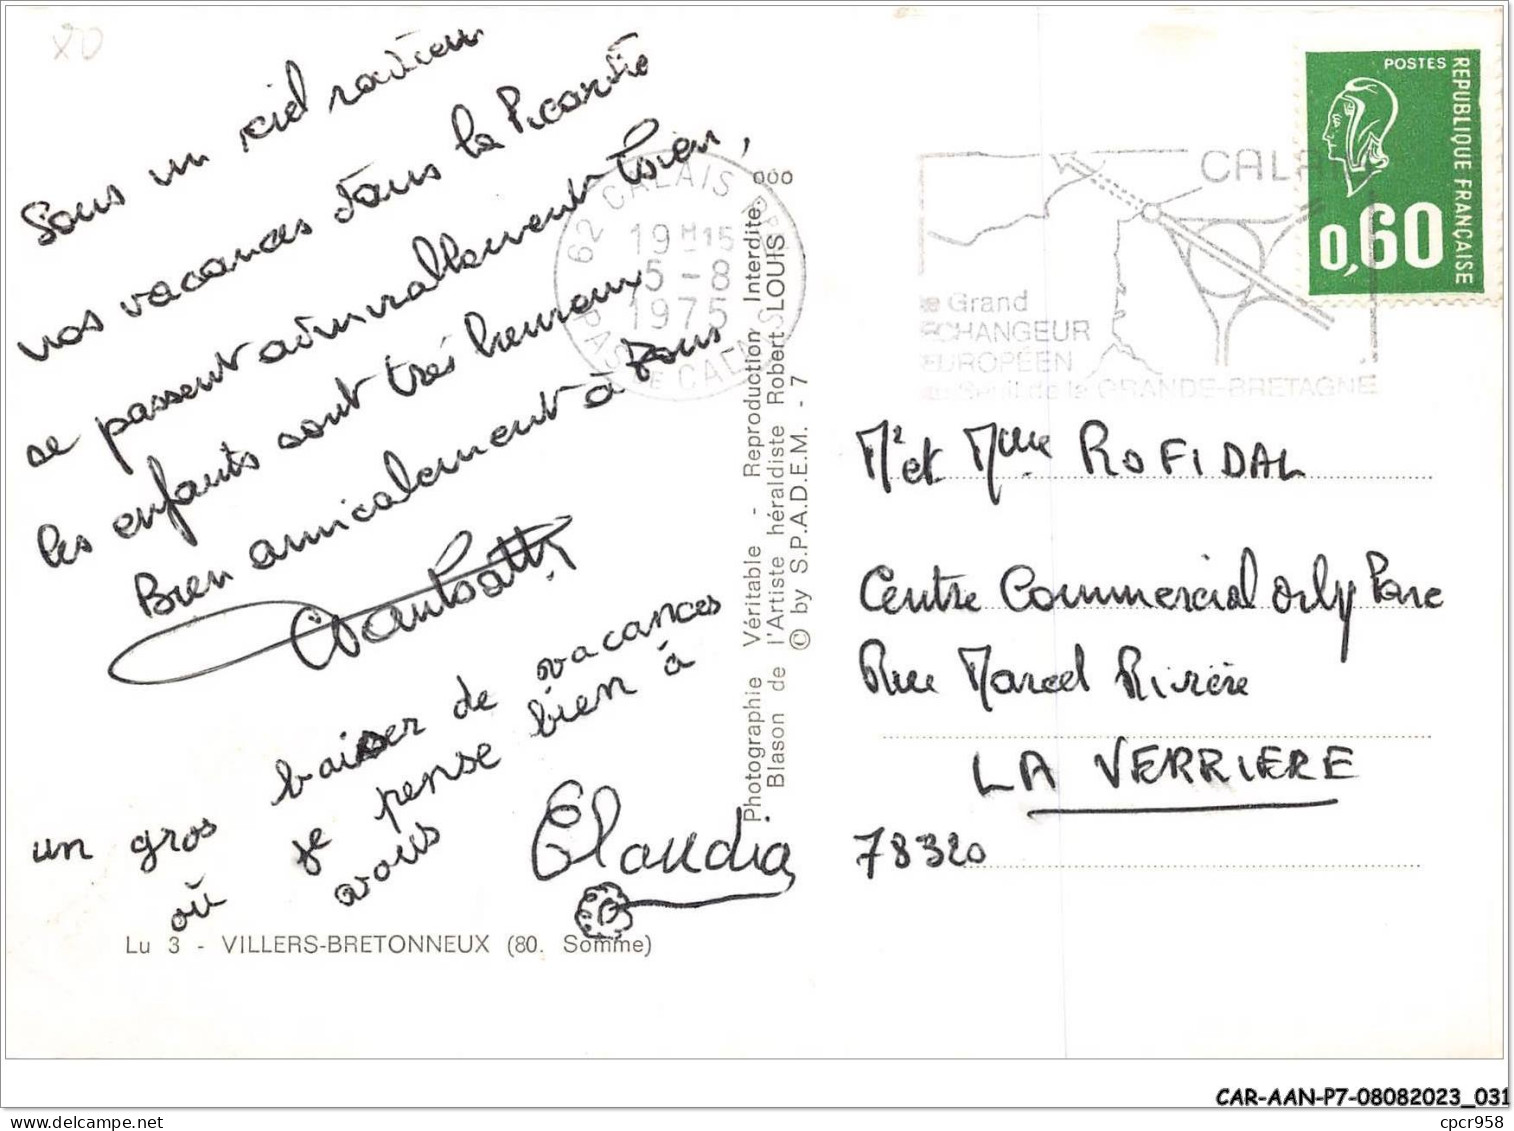 20
Sous un ciel radieux
vos vacances dans la Picardie
se passent admirablement bien,
les enfants sont très heureux
Bien amicalement à tous
un gros baiser de vacances
où je pense bien à
vous
Claudia
Lu 3 - VILLERS-BRETONNEUX (80. Somme)
Photographie Véritable - Reproduction Interdite
Blason de l'Artiste héraldiste Robert LOUIS
© by S.P.A.D.E.M. - 7
62 CALAIS PPAL
19H15
5-8
1975
PAS DE CALAIS
CALAIS
le Grand
ECHANGEUR
EUROPÉEN
au Seuil de la GRANDE-BRETAGNE
POSTES
REPUBLIQUE FRANÇAISE
0,60
Mr et Mme ROFIDAL
Centre Commercial Orly Parc
Rue Marcel Rivière
LA VERRIERE
78320
CAR-AAN-P7-08082023_031
delcampe.net
cpcr958